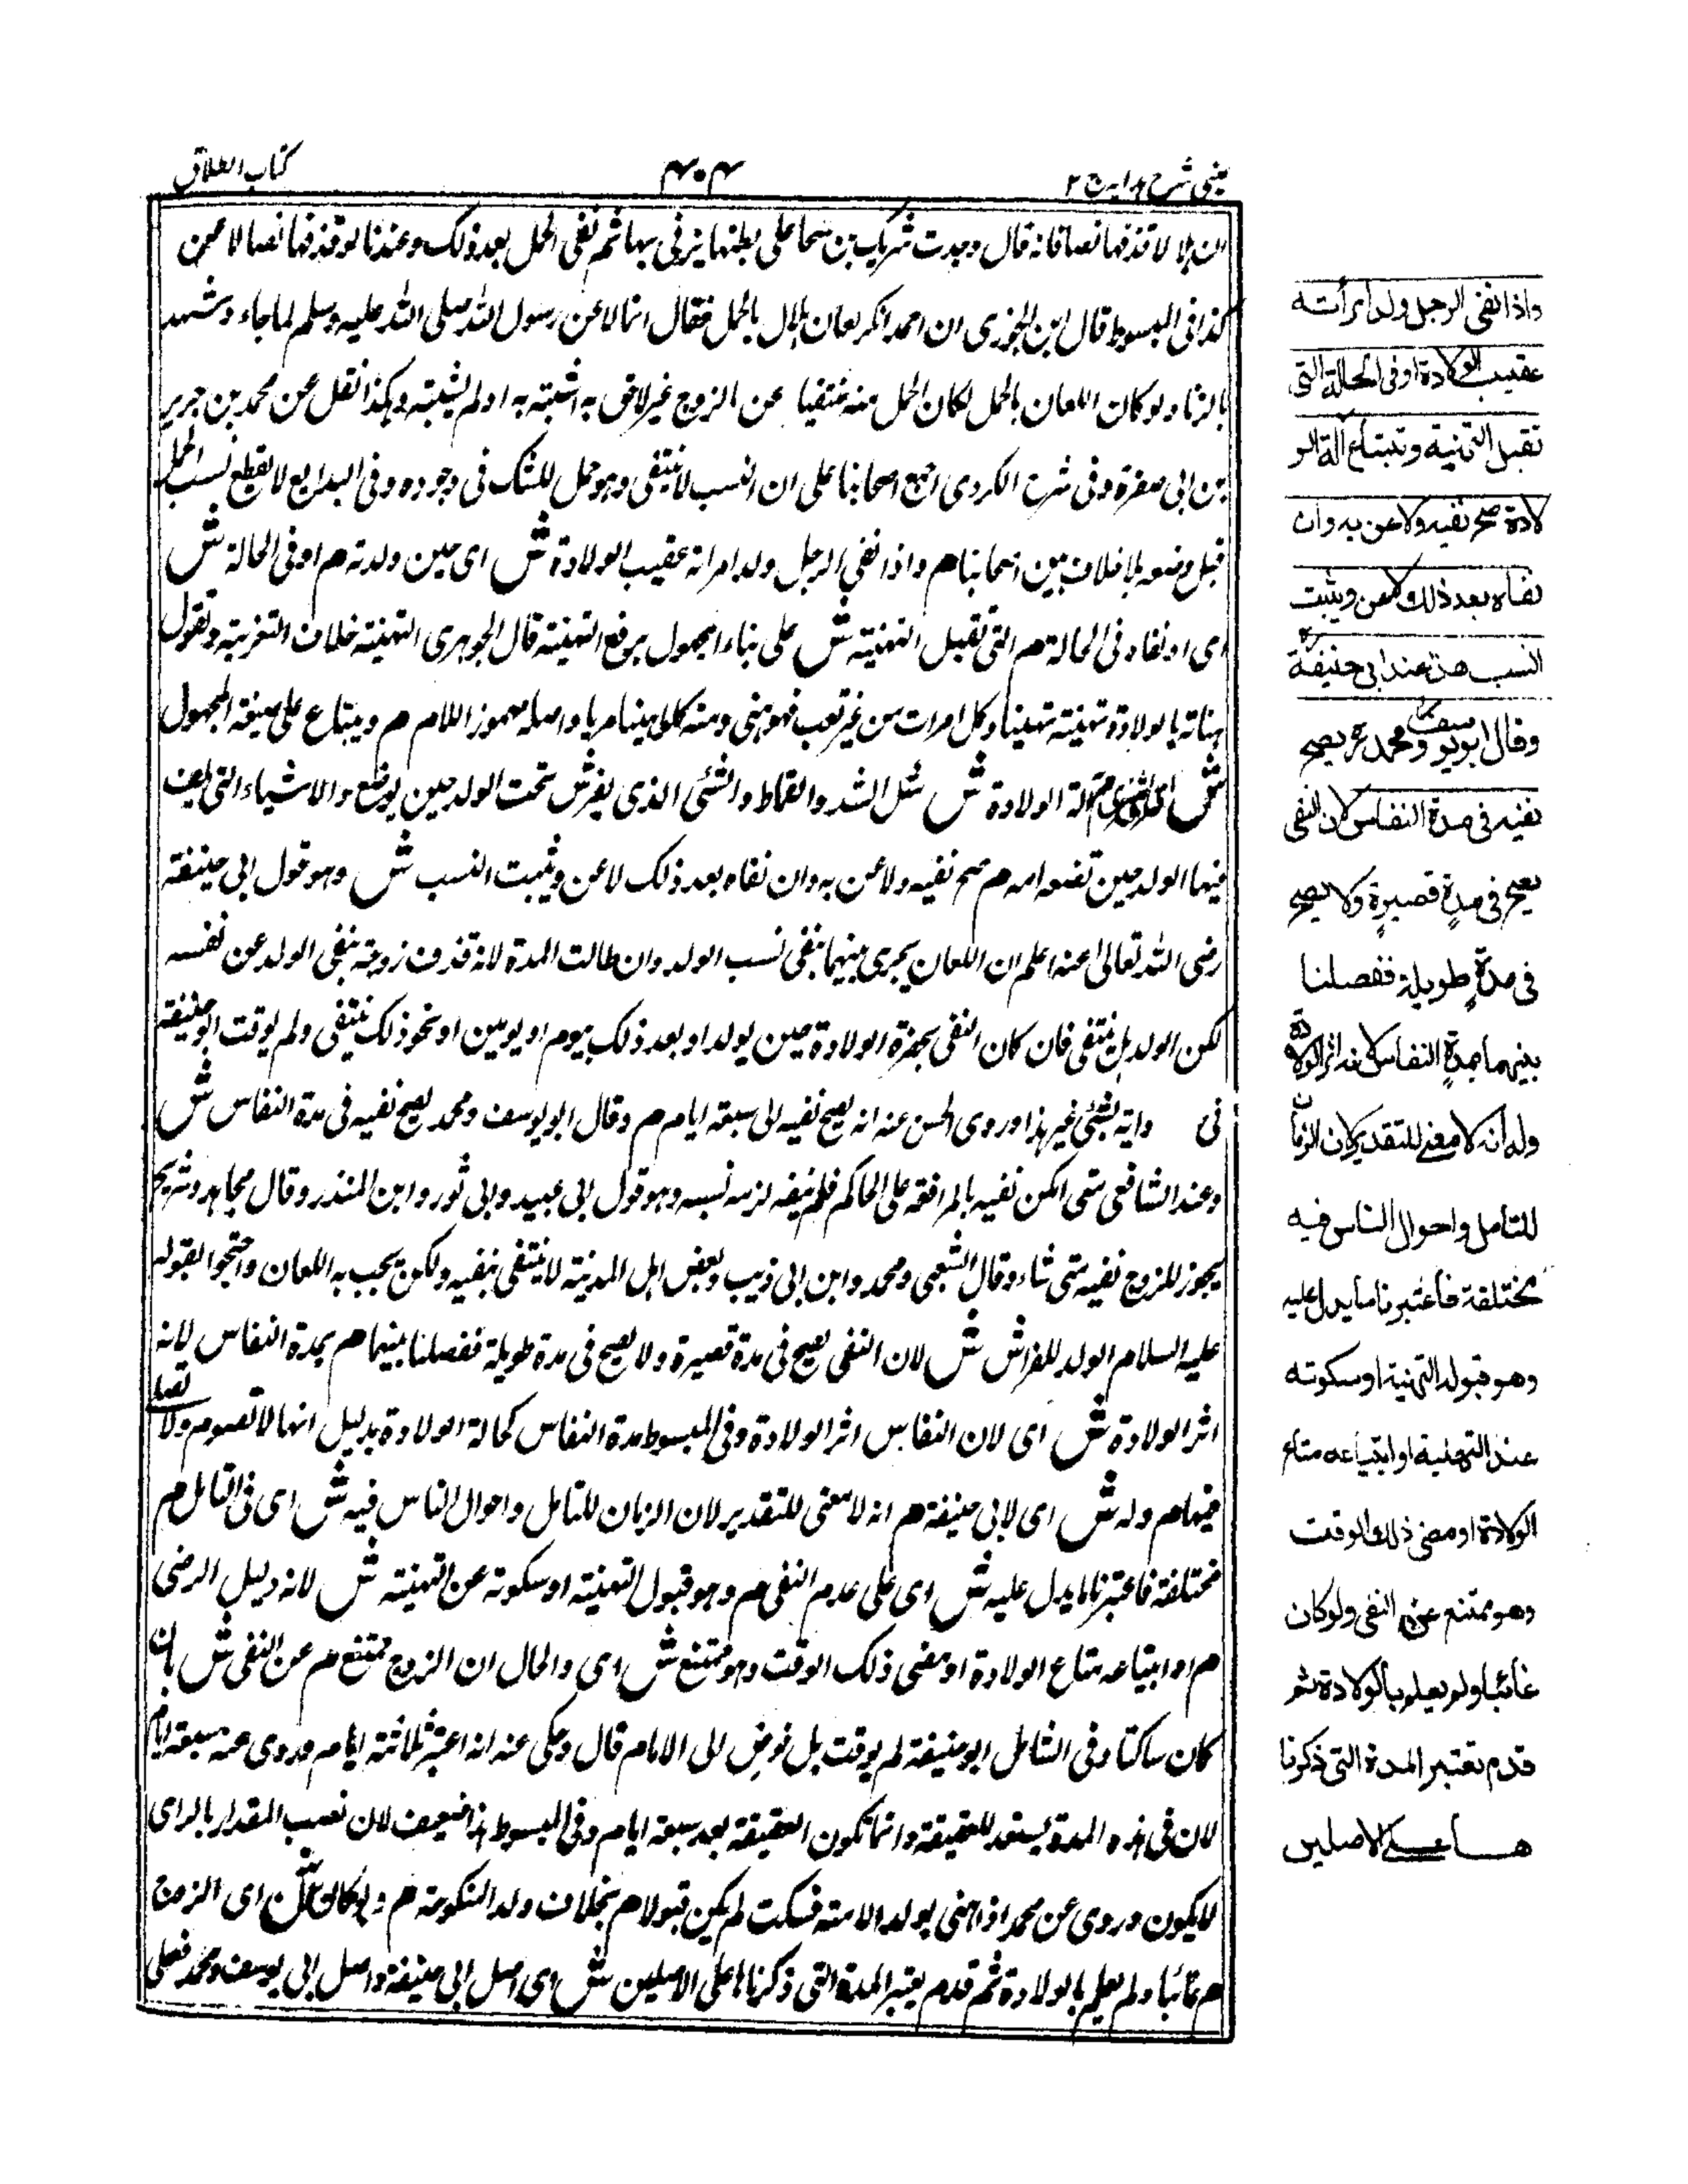 عینی شرح ہدایہ ج ۲
۴۰۴
کتاب الطلاق
ان ہلالا قذفہا نصا فانہ قال وجدت شریک بن سحما علی بطنہا یزنی بہا ثم نفی الحمل بعد ذلک وعندنا لو قذفہا نصا لاعن
کذا فی المبسوط قال ابن الجوزی ان احمد انکر لعان ہلال بالحمل فقال انما لاعن رسول اللہ صلی اللہ علیہ وسلم لما جاء وشہد
بالزنا ولو کان اللعان بالحمل لکان الحمل منہ منتفیا عن الزوج غیر لاحق بہ اشبہ بہ او لم یشبہ وہکذا نقل عن محمد بن جریر
بن ابی صفرة وفی شرح الکردی اجمع اصحابنا علی ان النسب لا ینتفی وہو حمل للشک فی وجودہ وفی البدایع لا یقطع نسب الحمل
قبل وضعہ بلا خلاف بین اصحابنا ھم واذا نفی الرجل ولد امراتہ عقیب الولادة ش ای حین ولدتہ ھم او فی الحالة ش
ای او نفاہ فی الحالة ھم التی تقبل التہنیة ش علی بناء المجہول برفع التہنیة قال الجوہری التہنیة خلاف التعزیة وتقول
ہناتہ بالولادة تہنیة تہنیئا وکل امر ات من غیر تعب فہو ہنی ومنہ کلوا ہنیئا مریا واصلہ مہموز اللام ھم ویبتاع علی صیغة المجہول
ش ای یشتری ھم آلة الولادة ش مثل الشد والقماط والشئی الذی یفرش تحت الولد حین یوضع والاشیاء التی یلف
فیہا الولد حین تضعہ امہ ھم صح نفیہ ولاعن بہ وان نفاہ بعد ذلک لاعن ویثبت النسب ش وہو قول ابی حنیفة
رضی اللہ تعالی عنہ اعلم ان اللعان یجری بینہما بنفی نسب الولد وان طالت المدة لانہ قذف زوجتہ بنفی الولد عن نفسہ
لکن الولد ہل ینتفی فان کان النفی بحضرة الولادة حین یولد او بعد ذلک بیوم او یومین او نحو ذلک ینتفی ولم یوقت ابو حنیفة
فی روایة بشئی غیر ہذا وروی الحسن عنہ انہ یصح نفیہ الی سبعة ایام ھم وقال ابو یوسف ومحمد یصح نفیہ فی مدة النفاس ش
وعند الشافعی متی امکن نفیہ بالمرافقة علی الحاکم فلم ینفہ لزمہ نسبہ وہو قول ابی عبید وابی ثور وابن المنذر وقال مجاہد وشریح
یجوز للزوج نفیہ متی شاء وقال الشعبی ومحمد وابن ابی ذیب وبعض اہل المدینة لا ینتفی بنفیہ ولکن یجب بہ اللعان واحتجوا بقولہ
علیہ السلام الولد للفراش ش لان النفی یصح فی مدة قصیرة ولا یصح فی مدة طویلة ففصلنا بینہما ھم بمدة النفاس لانہ
اثر الولادة ش ای لان النفاس اثر الولادة وفی المبسوط مدة النفاس کحالة الولادة بدلیل انہا لا تصوم ولا تصلی
فیہا ھم ولہ ش ای لابی حنیفة ھم انہ لا معنی للتقدیر لان الزمان للتامل واحوال الناس فیہ ش ای فی التامل ھم
مختلفة فاعتبرنا ما یدل علیہ ش ای علی عدم النفی ھم وہو قبول التہنیة او سکوتہ عن التہنیة ش لانہ دلیل الرضی
ھم او ابتیاعہ متاع الولادة او مضی ذلک الوقت وہو ممتنع ش ای والحال ان الزوج ممتنع ھم عن النفی ش بان
کان ساکتا وفی الشامل ابو حنیفة لم یوقت بل فوض الی الامام قال وحکی عنہ انہ اعتبر ثلاثة ایام وروی عنہ سبعة ایام
لان فی ہذہ المدة یستعد للعقیقة وانما تکون العقیقة بعد سبعة ایام وفی المبسوط ہذا ضعیف لان نصب المقدار بالرای
لا یکون وروی عن محمد اذا ہنی بولد الامة فسکت لم یکن قبولا ھم بخلاف ولد المنکوحة ھم ولو کان ش ای الزوج
ھم غائبا ولم یعلم بالولادة ثم قدم یعتبر المدة التی ذکرناہا علی الاصلین ش ای اصل ابی حنیفة واصل ابی یوسف ومحمد فعلی
واذا نفی الرجل ولد امرأته
عقيب الولادة او فی الحالة التی
تقبل التهنية وتبتاع آلة الو
لادة صح نفيه ولاعن به وان
نفاه بعد ذلك لاعن ويثبت
النسب هذا عند ابی حنيفة رح
وقال ابو يوسف ومحمد رح يصح
نفيه فی مدة النفاس لان النفی
يصح فی مدة قصيرة ولا يصح
فی مدة طويلة ففصلنا
بينهما بمدة النفاس لانه اثر الولادة
وله انه لا معنے للتقدير لان الزمان
للتأمل واحوال الناس فيه
مختلفة فاعتبرنا ما يدل عليه
وهو قبوله التهنية او سكوته
عند التهنية او ابتياعه متاع
الولادة او مضی ذلك الوقت
وهو ممتنع عن النفی ولو كان
غائبا ولم يعلم بالولادة ثم
قدم تعتبر المدة التی ذكرنا
ها علے الاصلين